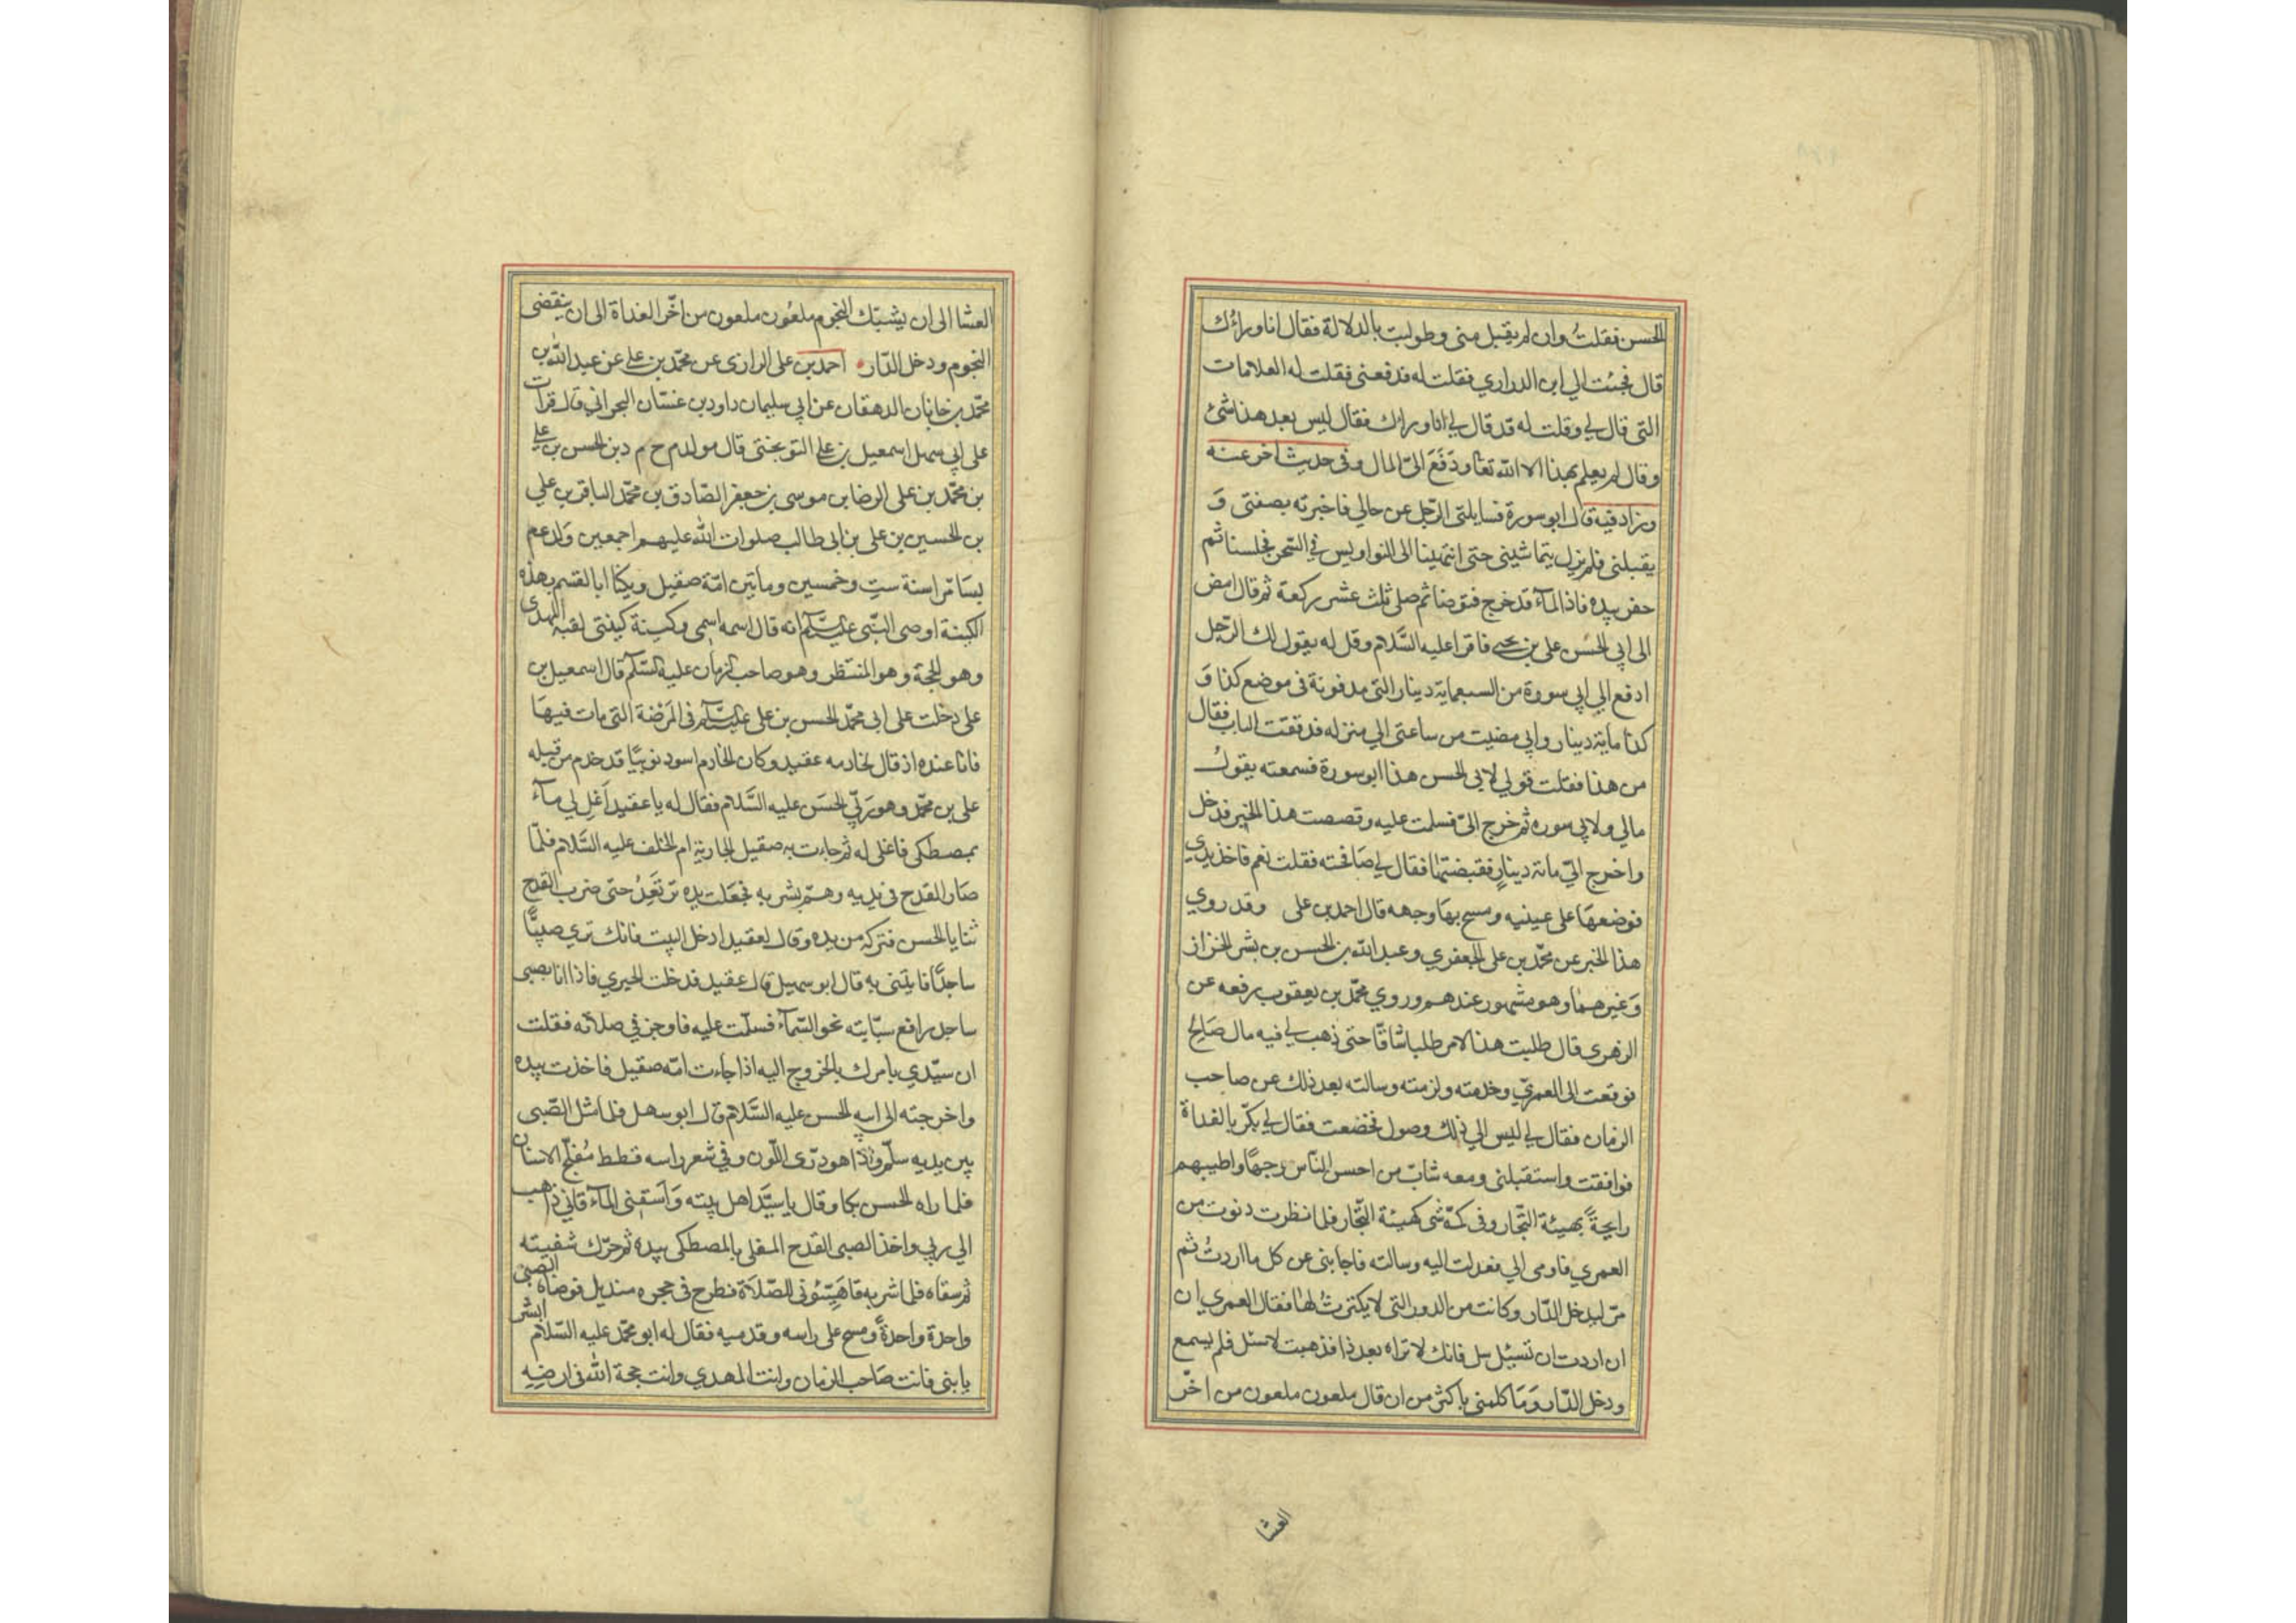 الحسن فقلتُ وان لم يقبل منى وطولبت بالدلالة فقال انا وراءُك
قال فجئت الي ابن الدراري فقلت له فدفعنى فقلت له العلامات
التى قال لي وقلت له قد قال لي انا وراك فقال ليس بعد هذا شئ
وقال لم يعلم بهذا الا الله تعا ودَفَعَ الىّ المال وفى حديث اخر عنه
وزاد فيه قال ابو سورة فسايلنى الرّجل عن حالي فاخبرته بصفتى وَ
يقبلنى فلم يزل يتماشينى حتى انتهينا الى النواويس في السّحر فجلسنا ثم
حفر بيده فاذا المآء قد خرج فتوضا ثم صلى ثلث عشر ركعة ثم قال امض
الى ابى الحسَن على بن يحيى فاقرا عليه السَّلام وقل له يقول لك الرّجل
ادفع الي ابي سورة من السبعماية دينار التى مدفونة فى موضع كذا وَ
كذا ماية دينار واني مضيت من ساعتى الي منزله فدققت الباب فقال
من هذا فقلت قولي لابى الحسن هذا ابو سورة فسمعته يقول
مالي ولابي سوره ثم خرج الىّ فسلمت عليه وقصصت هذا الخبر فدخل
واخرج اليّ ماية دينارٍ فقبضتها فقال لي صَافحته فقلت نعم فاخذ يدي
فوضعهَا على عينيه ومسح بهَا وجهه قال احمد بن على وقد روي
هذا الخبر عن محمّد بن على الجعفري وعبد الله بن الحسن بن بشر الخزاز
وَغيرهما وهو مشهور عندهم وروي محمّد بن يعقوب رفعه عن
الزهرى قال طلبت هذا الامر طلبا شاقّا حتى ذهب لي فيه مال صَالح
فوقعت الى العمريّ وخدمته ولزمته وسالته بعد ذلك عن صاحب
الزمان فقال لي ليس الي ذلك وصول فخضعت فقال لي بكّر بالغداة
فوافقت واستقبلنى ومعه شابّ من احسن النّاس وجهًا واطيبهم
رايحةً بهيئة التّجار وفى كمّه شى كهيئة التّجار فلما نظرت دنوت من
العمري فاومى الي فعدلت اليه وسالته فاجابنى عن كل ما اردتُ ثم
مرّ ليدخل الدّار وكانت من الدور التى لا يكترثُ لها فقال العمري ان
ان اردت ان تسئل سل فانك لا تراه بعد ذا فذهبت لاسئل فلم يسمع
ودخل الدّار وَمَا كلمنى باكثر من ان قال ملعون ملعون من اخّر
العشا
العشا الى ان يشبتك النجوم ملعُون ملعون من اخّر الغداة الى ان ينقضى
النجوم ودخل الدّار احمد بن على الرازى عن محمّد بن علي عن عبد الله بن
محمّد بن خاپان الدهقان عن ابى سليمان داود بن غسّان البحرانى قال قرات
على ابي سهل اسمعيل بن علي النوبختى قال مولد م ح م د بن الحسن بن علي
بن محمّد بن على الرضا بن موسى بن جعفر الصّادق بن محمّد الباقر بن علي
بن الحسين بن على بن ابى طالب صلوات الله عليهم اجمعين وَلد عم
بسَامرّا سنة ستٍ وخمسين وماتين امّه صقيل ويكنا ابا القسم بهذه
الكينة اوصى النّبى عليه السّلم انه قال اسمه اسمى وكينة كينتى لقبه المهدى
وهو الحجة وهو المنتظر وهو صاحب الزمان عليه السّلم قال اسمعيل بن
على دخلت على ابى محمّد الحسن بن على عليه السّلم فى المَرضة التى مات فيهَا
فانا عنده اذ قال لخادمه عقيد وكان الخادم اسود نوبيّا قد خدم من قبله
على بن محمّد وهو رَبّي الحسَن عليه السَّلام فقال له يا عقيد اَغل لي مآءً
بمصطكى فاغلى له ثم جاءت به صقيل الجارية ام الخلف عليه السَّلام فلمّا
صَار القدح فى يديه وهمّ بشربه فجعَلت يده ترتعِدُ حتى ضرب القدح
ثنايا الحسن فتركه من يده وقال لعقيد ادخل البيت فانك ترى صبيًّا
ساجدًا فايتنى به قال ابو سهيل قال عقيد فدخلت الحيري فاذا انا بصبى
ساجد رافع سبّابته نحو السّمآء فسلّمت عليه فاوجز في صلاته فقلت
ان سيّدي يامرك بالخروج اليه اذا جاءت امّه صقيل فاخذت بيده
واخرجته الى ابيه الحسن عليه السَّلام قال ابو سهل فلما مثل الصّبى
بين يديه سلّم واذا هو درّى اللّون وفي شعر راسه قطط مُفلّج الاسنان
فلما راه الحسن بكا وقال يا سيَّد اهل بيته وَاَسقِنى المآء فاني ذاهب
الي ربي واخذ الصبى القدح المغلى بالمصطكى بيده ثم حرّك شفيته
ثم سقاه فلما شربه قا هَيّئونى للصّلاَة فطرح فى حجره منديل فوضاه الصبى
واحدة واحدةً ومسح على راسه وقدميه فقال له ابو محمّد عليه السّلام ابشر
يا بنى فانت صَاحب الزمان وانت المهدي وانت حجة الله فى ارضِهِ